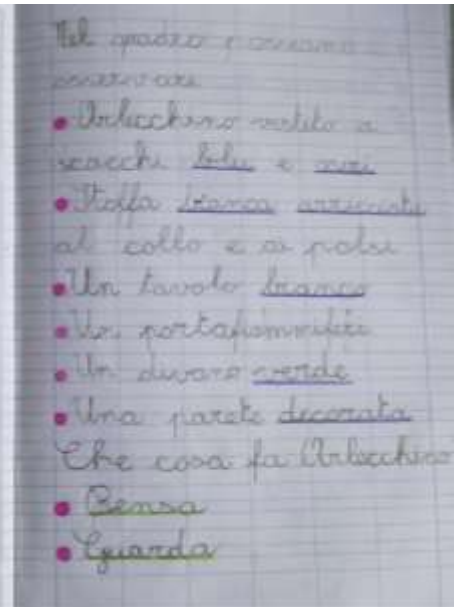 Nel quadro possiamo
osservare
• Arlecchino vestito a
scacchi blu e neri
• Stoffa bianca arricciata
al collo e ai polsi
• Un tavolo bianco
• Un portafiammiferi
• Un divano verde
• Una parete decorata
Che cosa fa Arlecchino
• Pensa
• Guarda